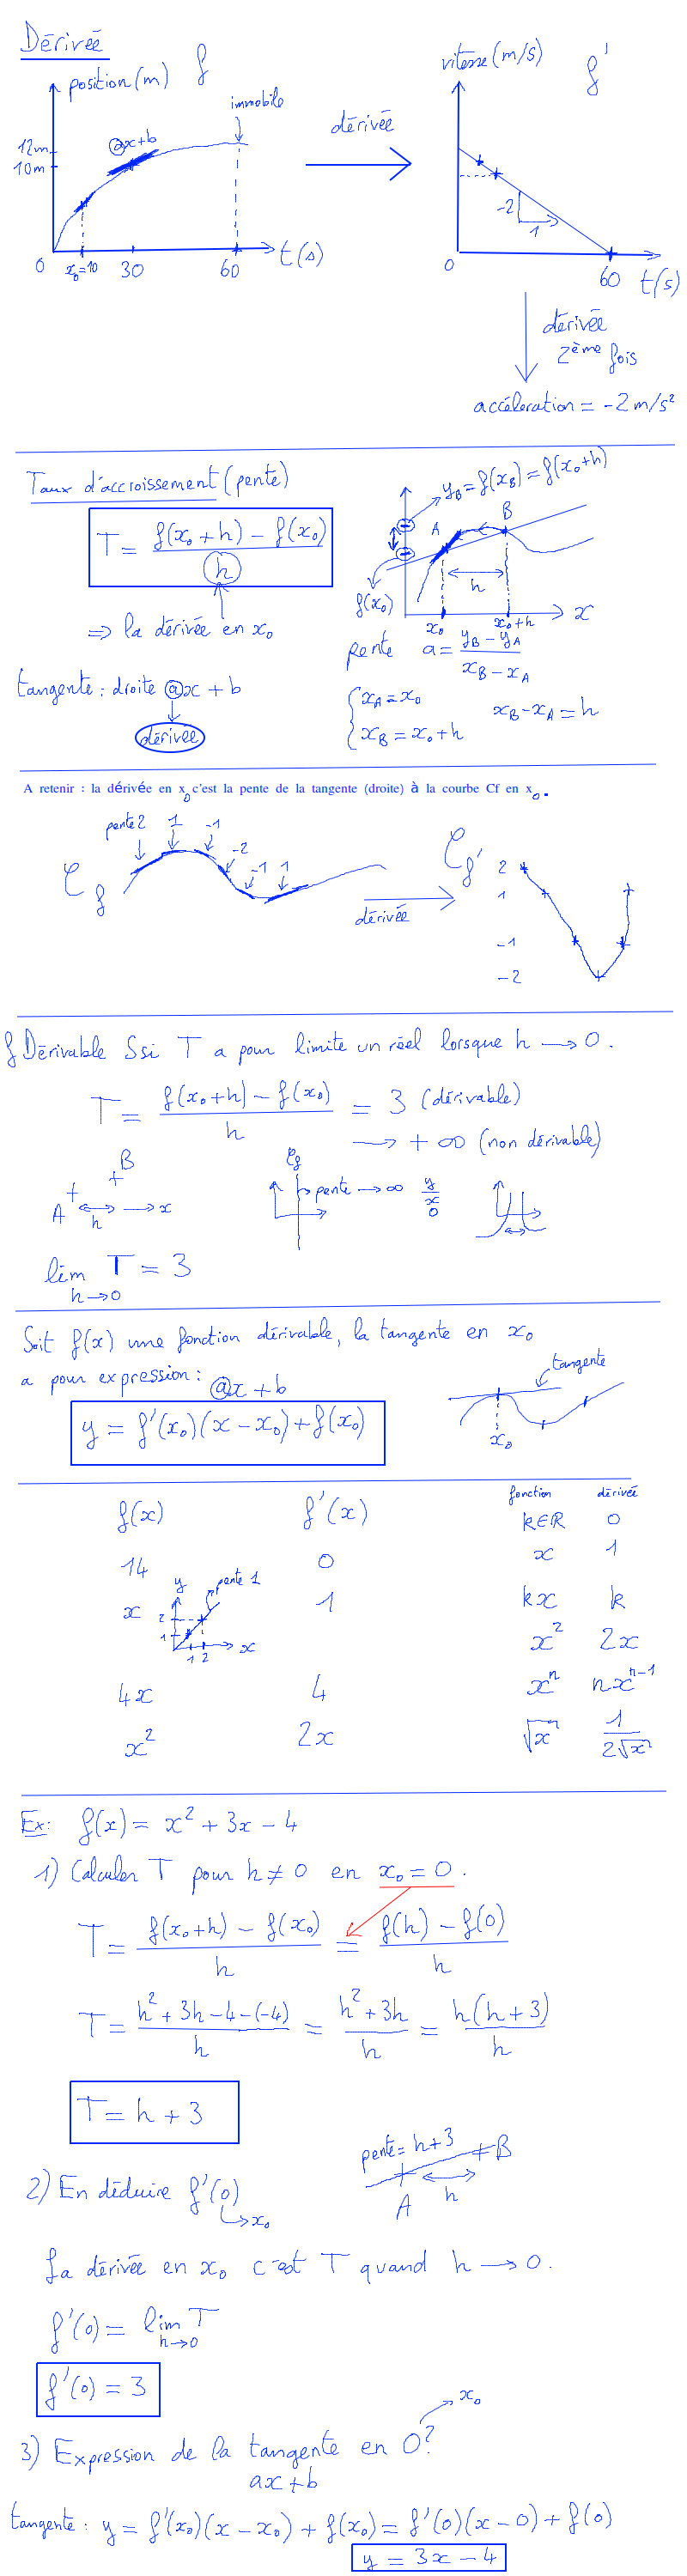 Dérivée
position (m) f
immobile
ax+b
12m
10m
0 x₀=10 30 60 t(s)
dérivée
vitesse (m/s) f'
-2
1
0 60 t(s)
dérivée
2ème fois
accéleration = -2 m/s²
Taux d'accroissement (pente)
T = (f(x₀+h) - f(x₀))/h
⇒ la dérivée en x₀
tangente : droite ax + b
dérivée
y_B = f(x_B) = f(x₀+h)
A B
h
f(x₀)
x₀ x₀+h x
pente a = (y_B - y_A)/(x_B - x_A)
{x_A = x₀
x_B = x₀+h
x_B - x_A = h
A retenir : la dérivée en x₀ c'est la pente de la tangente (droite) à la courbe Cf en x₀.
C_f
pente 2 1 -1 -2 -1 1
dérivée
C_f'
2
1
-1
-2
f Dérivable Ssi T a pour limite un réel lorsque h → 0.
T = (f(x₀+h) - f(x₀))/h = 3 (dérivable)
→ +∞ (non dérivable)
A B
h → x
C_f
pente → ∞ y/x
0
lim T = 3
h→0
Soit f(x) une fonction dérivable, la tangente en x₀
a pour expression : ax+b
y = f'(x₀)(x-x₀)+f(x₀)
tangente
x₀
f(x) f'(x)
14 0
x 1
y pente 1
2
1
1 2 x
4x 4
x² 2x
fonction dérivée
k∈R 0
x 1
kx k
x² 2x
xⁿ nxⁿ⁻¹
√x 1/(2√x)
Ex: f(x) = x² + 3x - 4
1) Calculer T pour h ≠ 0 en x₀ = 0.
T = (f(x₀+h) - f(x₀))/h = (f(h) - f(0))/h
T = (h² + 3h - 4 - (-4))/h = (h² + 3h)/h = h(h+3)/h
T = h + 3
pente = h+3
A B
h
2) En déduire f'(0)
→ x₀
La dérivée en x₀ c'est T quand h → 0.
f'(0) = lim T
h→0
f'(0) = 3
3) Expression de la tangente en 0?
x₀
ax+b
tangente : y = f'(x₀)(x-x₀) + f(x₀) = f'(0)(x-0) + f(0)
y = 3x - 4